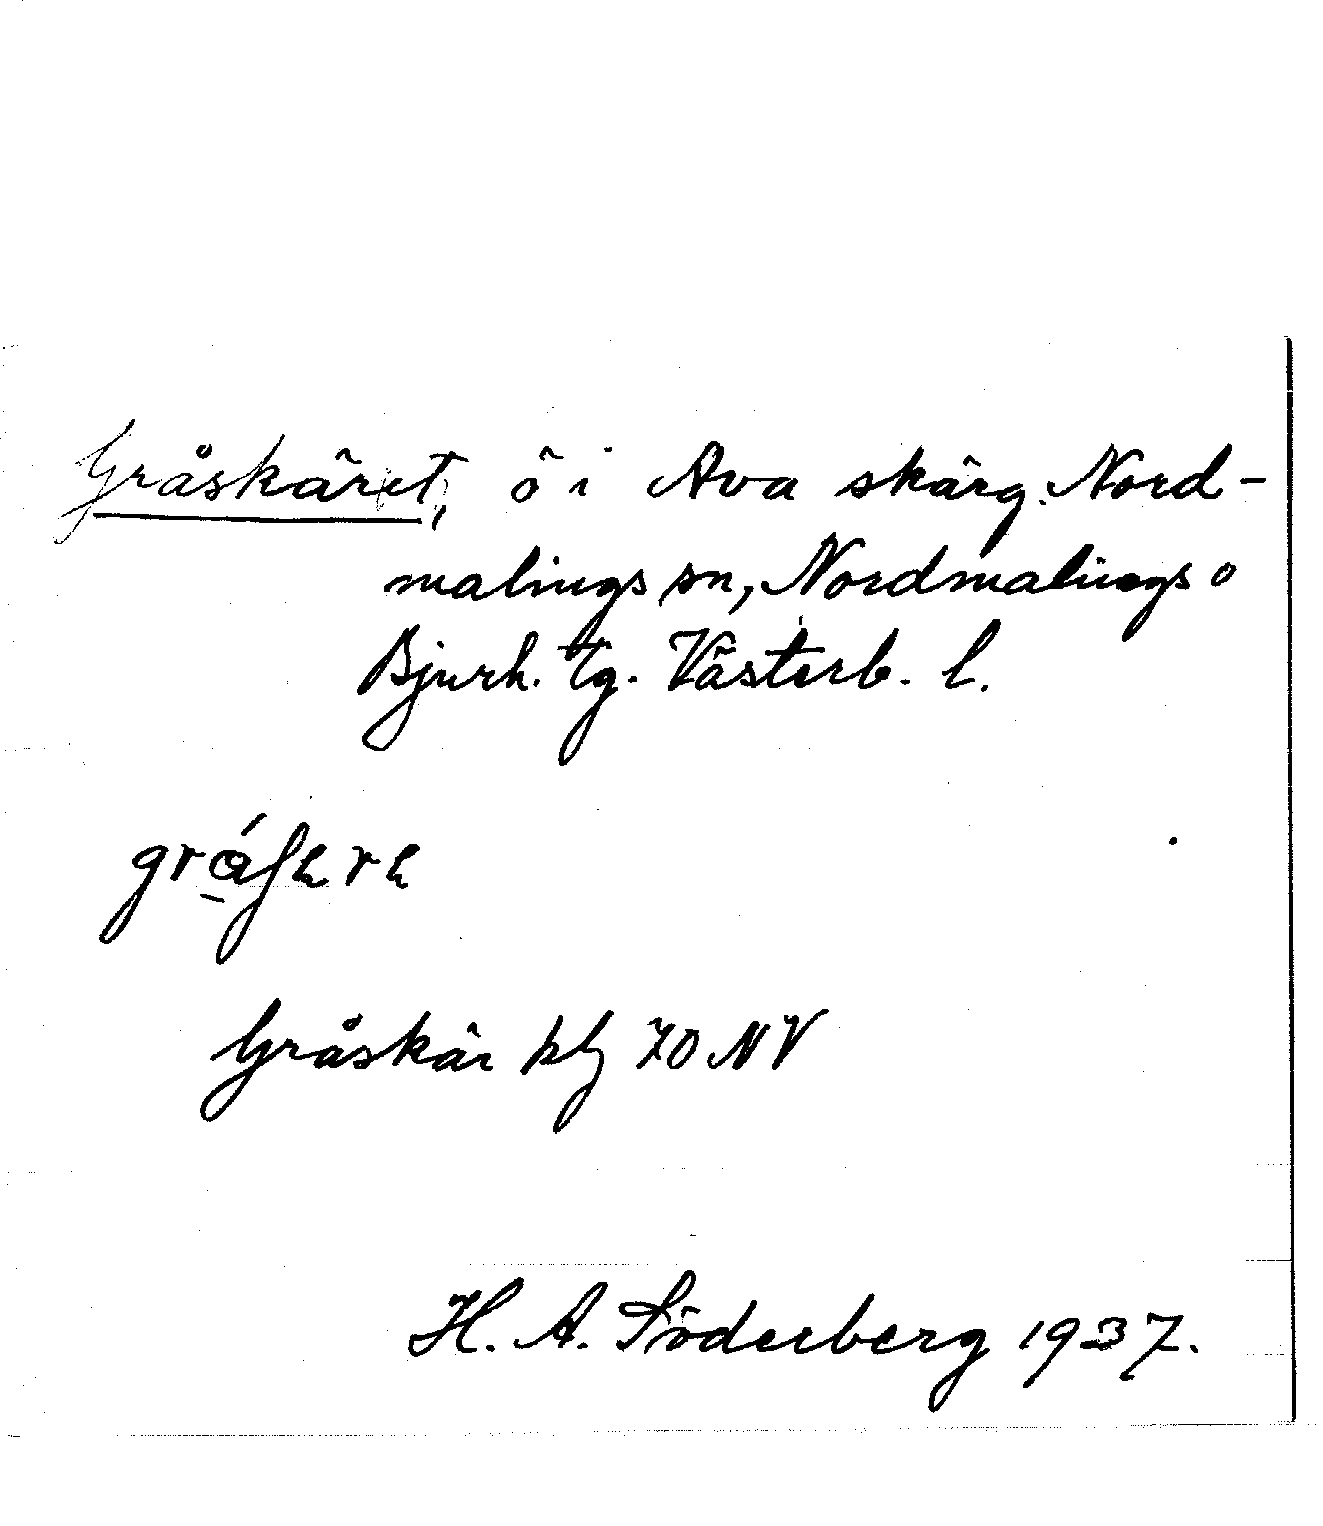 Gråskäret, ö i Ava skärg. Nord-
malings sn, Nordmalings o
Bjurh. tg. Västerb. l.
Gråskär blz 70 NV
H. A. Söderberg 1937.